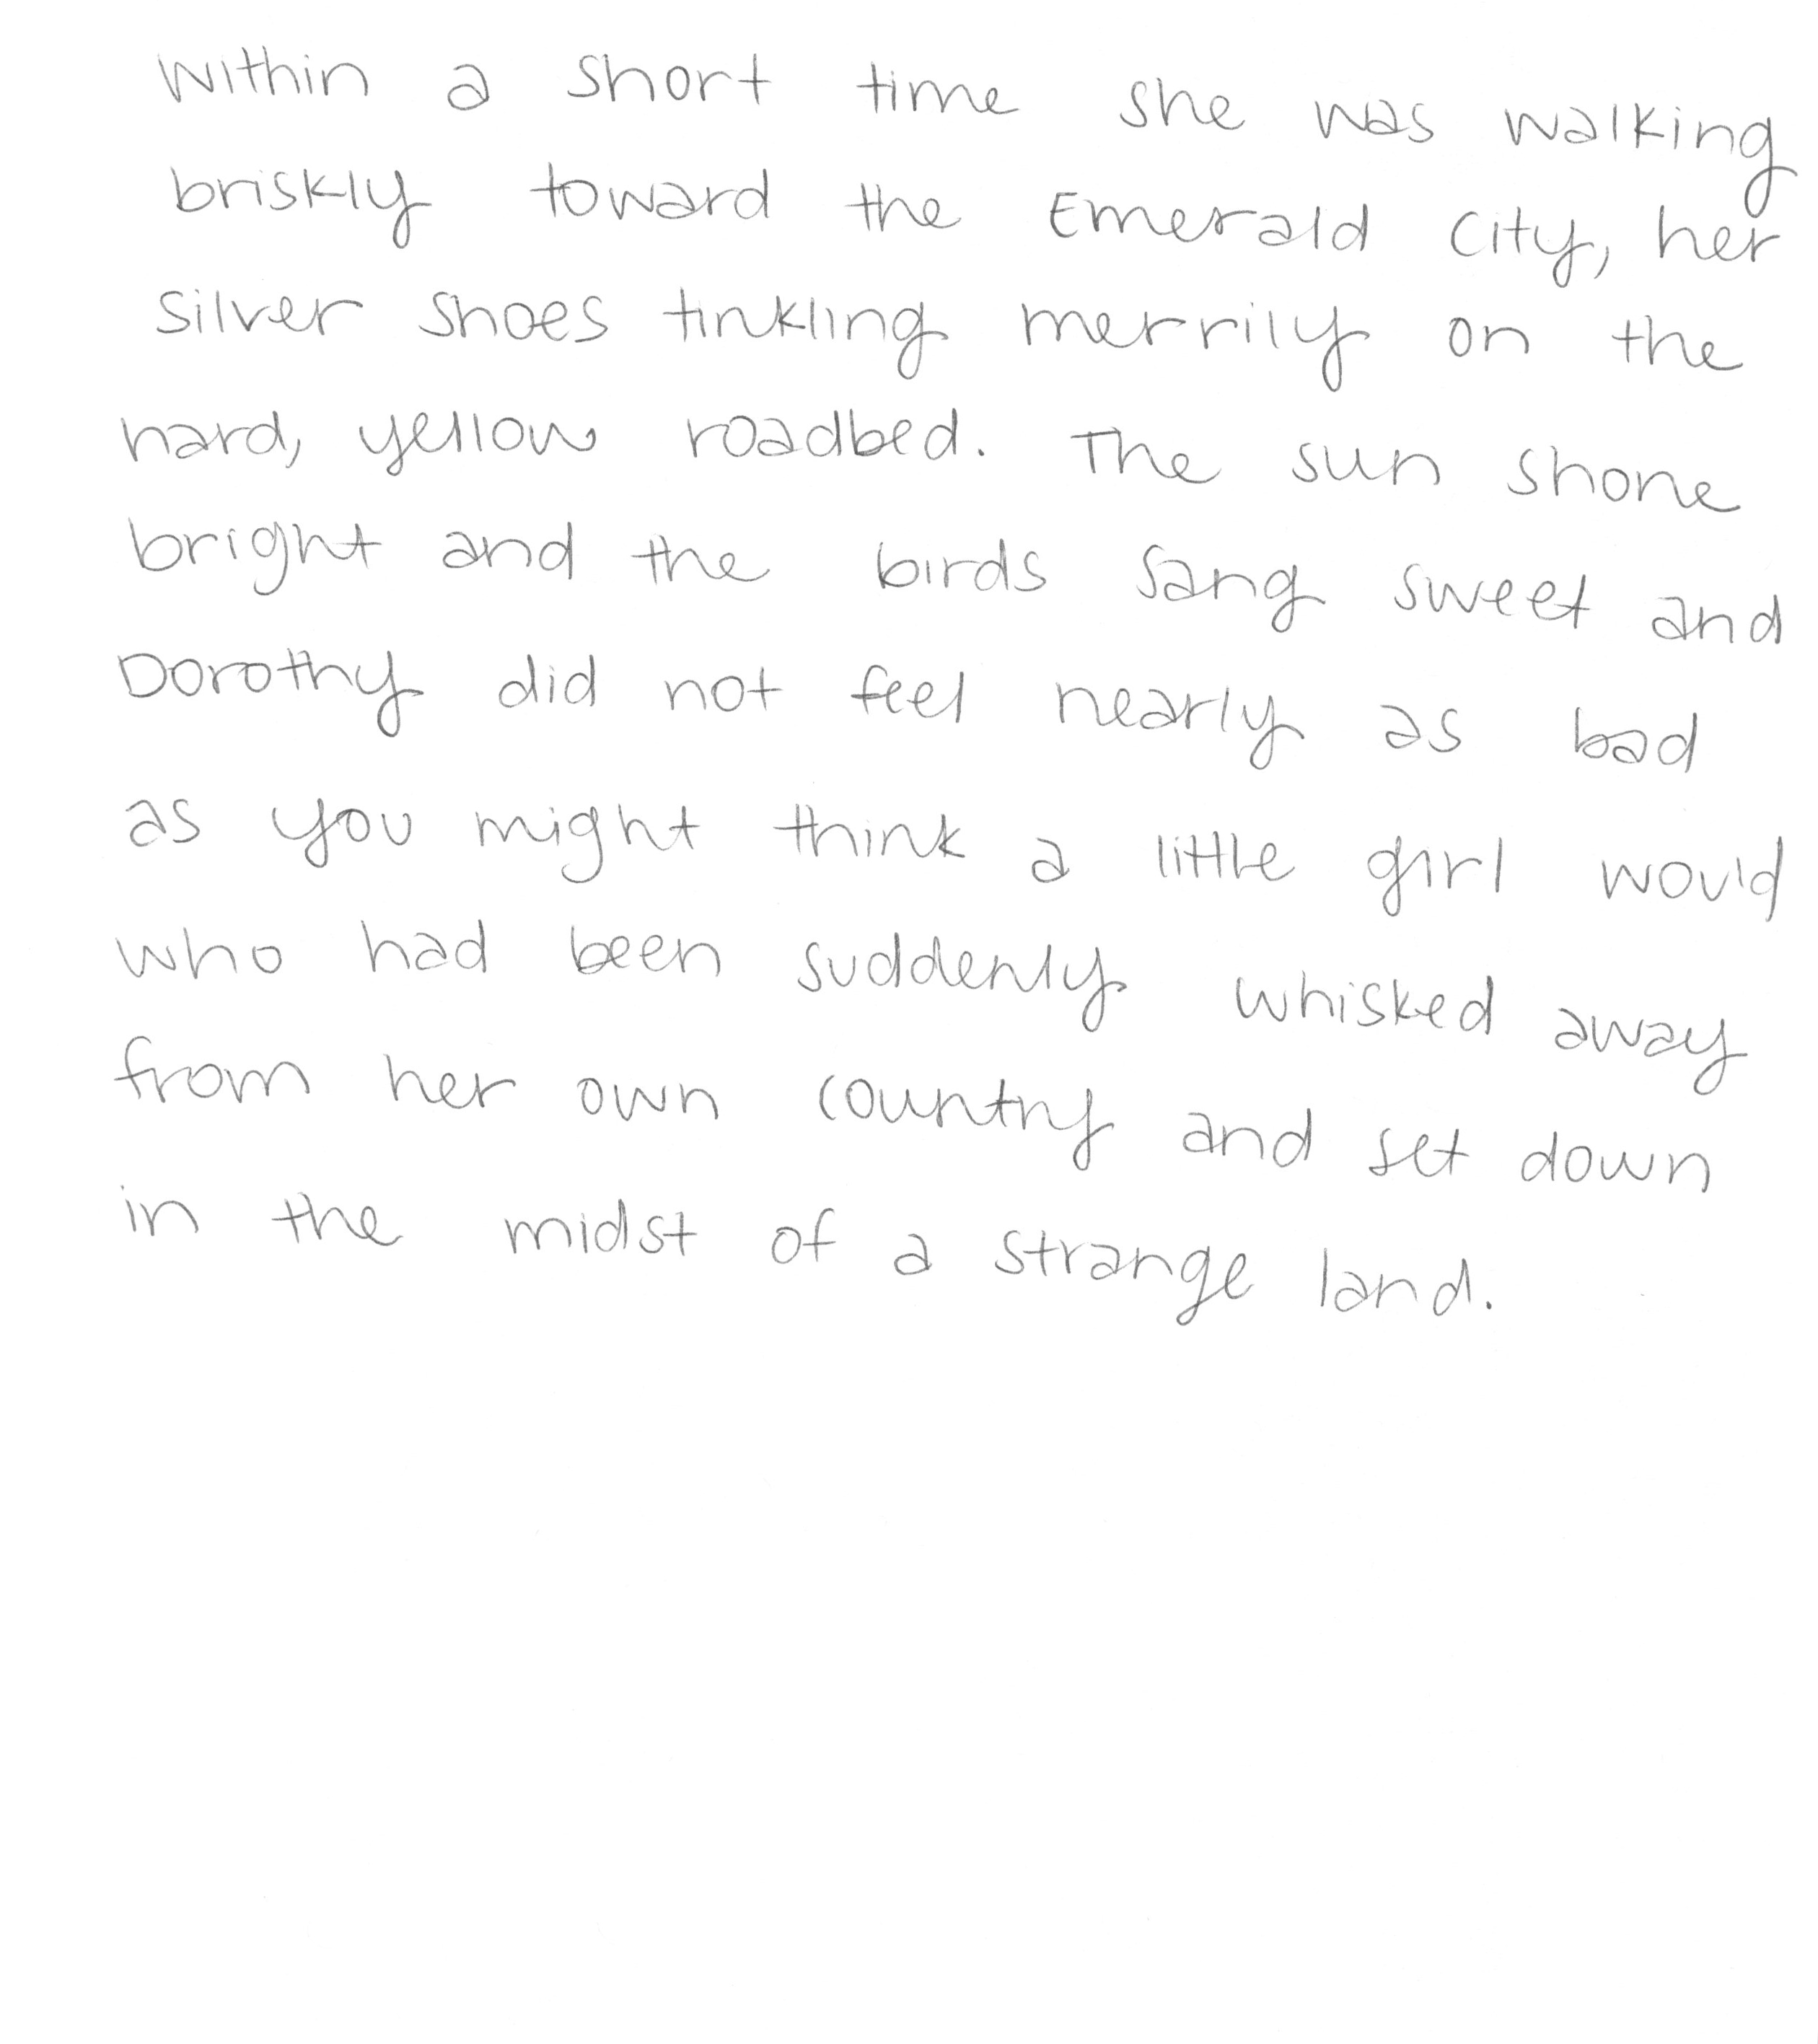 Within a short time she was walking
briskly toward the Emerald City, her
silver shoes tinkling merrily on the
hard, yellow roadbed. The sun shone
bright and the birds sang sweet and
Dorothy did not feel nearly as bad
as you might think a little girl would
who had been suddenly whisked away
from her own country and set down
in the midst of a strange land.